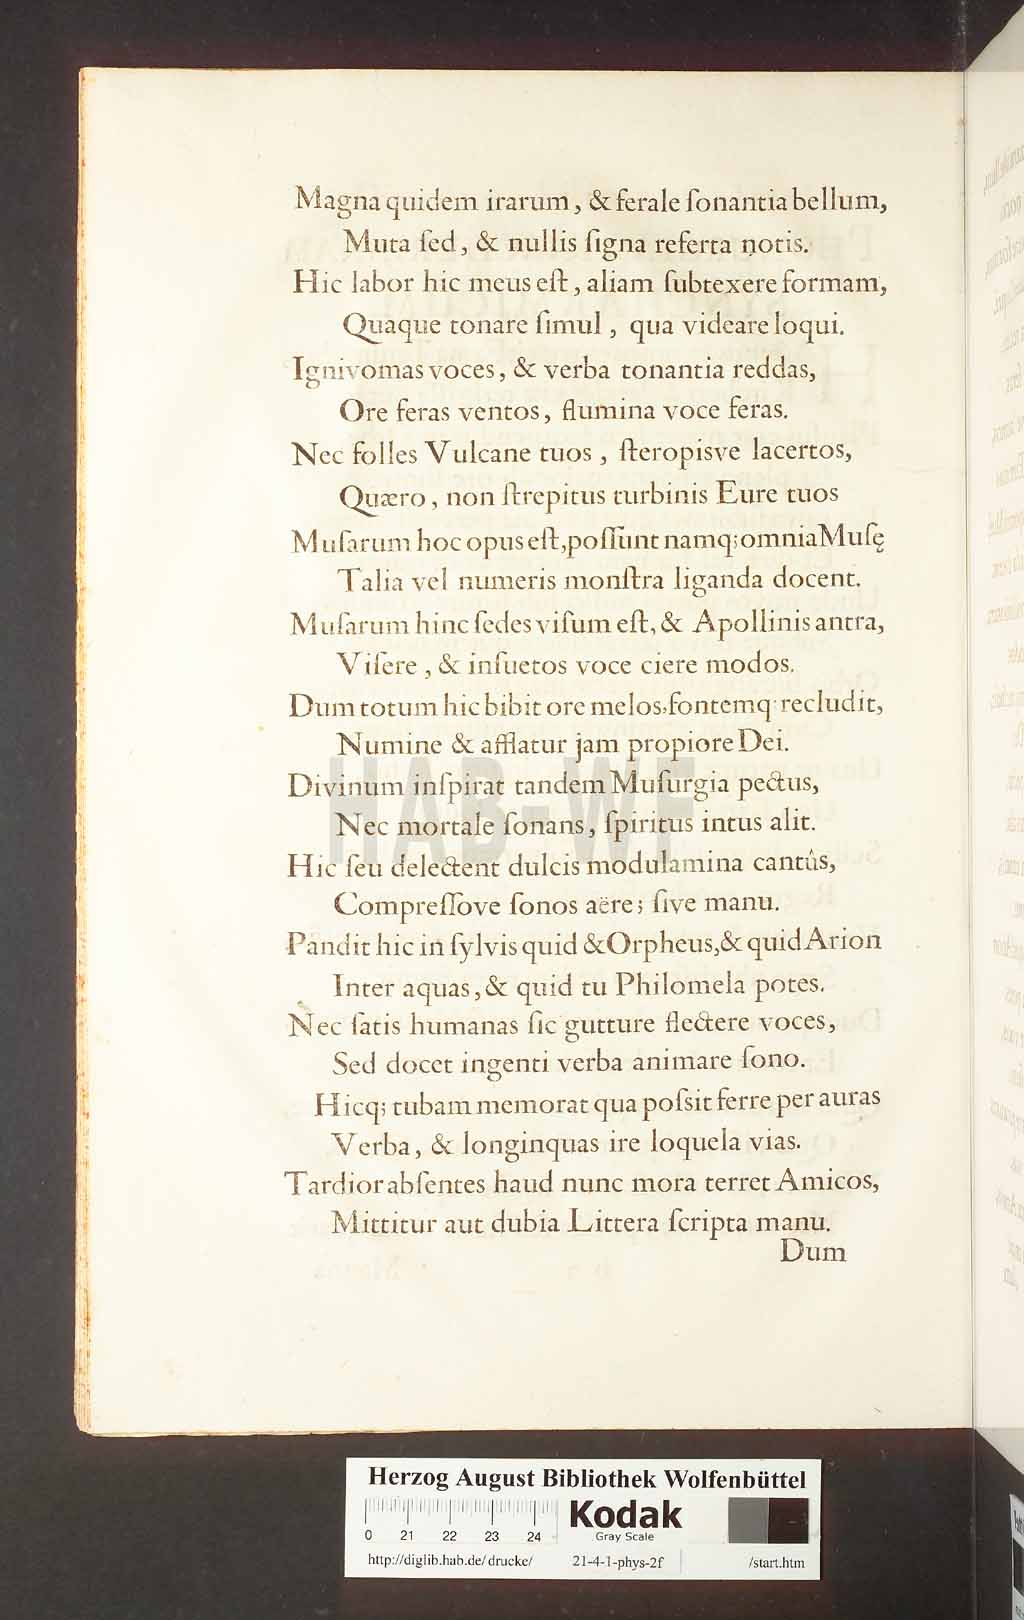 Magna quidem irarum, & ferale ſonantia bellum,
Muta ſed, & nullis ſigna referta notis.
Hic labor hic meus eſt, aliam ſubtexere formam,
Quaque tonare ſimul, qua videare loqui.
Ignivomas voces, & verba tonantia reddas,
Ore feras ventos, flumina voce feras.
Nec folles Vulcane tuos, ſteropisve lacertos,
Quæro, non ſtrepitus turbinis Eure tuos
Muſarum hoc opus eſt, poſſunt namq; omnia Muſę
Talia vel numeris monſtra liganda docent.
Muſarum hinc ſedes viſum eſt, & Apollinis antra,
Viſere, & inſuetos voce ciere modos.
Dum totum hic bibit ore melos, fontemq; recludit,
Numine & afflatur jam propiore Dei.
Divinum inſpirat tandem Muſurgia pectus,
Nec mortale ſonans, ſpiritus intus alit.
Hic ſeu delectent dulcis modulamina cantûs,
Compreſſove ſonos aëre; ſive manu.
Pandit hic in ſylvis quid & Orpheus, & quid Arion
Inter aquas, & quid tu Philomela potes.
Nec ſatis humanas ſic gutture flectere voces,
Sed docet ingenti verba animare ſono.
Hicq; tubam memorat qua poſsit ferre per auras
Verba, & longinquas ire loquela vias.
Tardior abſentes haud nunc mora terret Amicos,
Mittitur aut dubia Littera ſcripta manu.
Dum
HAB-WF
Herzog August Bibliothek Wolfenbüttel
0 21 22 23 24
Kodak
Gray Scale
http://diglib.hab.de/drucke/ 21-4-1-phys-2f /start.htm